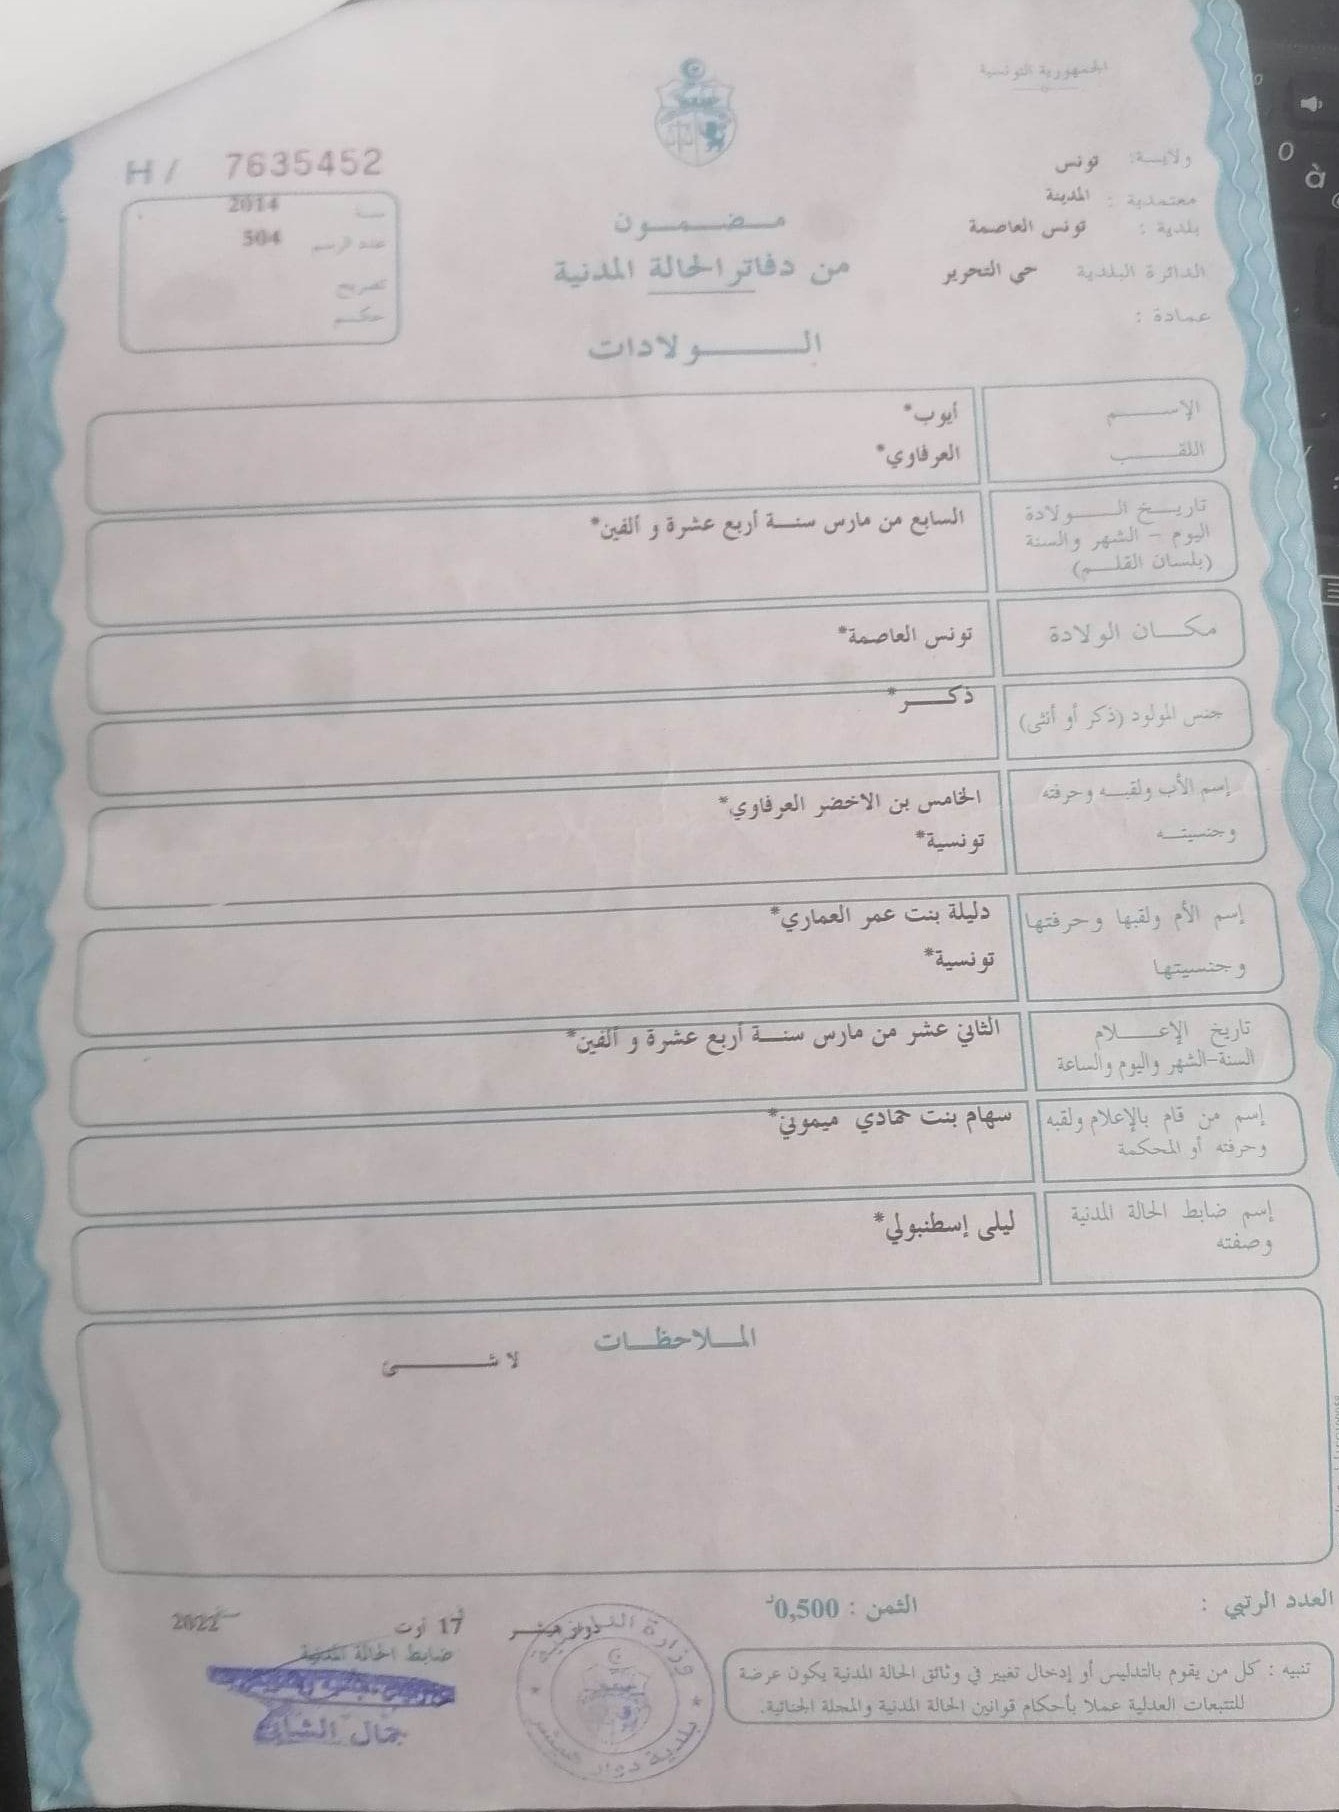 الجمهورية التونسية
ولاية: تونس
معتمدية : المدينة
بلدية : تونس العاصمة
الدائرة البلدية حي التحرير
عمادة :
H / 7635452
سنة 2014
عدد الرسم 504
تصريح
حكم
مضمون
من دفاتر الحالة المدنية
الولادات
الإسم أيوب*
اللقب العرفاوي*
تاريخ الولادة السابع من مارس سنة أربع عشرة و ألفين*
اليوم - الشهر والسنة
(بلسان القلم)
مكان الولادة تونس العاصمة*
جنس المولود (ذكر أو أنثى) ذكر*
إسم الأب ولقبه وحرفته الخامس بن الاخضر العرفاوي*
وجنسيته تونسية*
إسم الأم ولقبها وحرفتها دليلة بنت عمر العماري*
وجنسيتها تونسية*
تاريخ الإعلام الثاني عشر من مارس سنة أربع عشرة و ألفين*
السنة-الشهر واليوم والساعة
إسم من قام بالإعلام ولقبه سهام بنت حمادي ميموني*
وحرفته أو المحكمة
إسم ضابط الحالة المدنية ليلى إسطنبولي*
وصفته
الملاحظات
لا شئ
العدد الرتبي :
الثمن : 0,500د
تنبيه : كل من يقوم بالتدليس أو إدخال تغيير في وثائق الحالة المدنية يكون عرضة
للتتبعات العدلية عملا بأحكام قوانين الحالة المدنية والمجلة الجنائية.
دوار هيشر 17 أوت 2022
ضابط الحالة المدنية
جمال
وزارة الداخلية
بلدية دوار هيشر